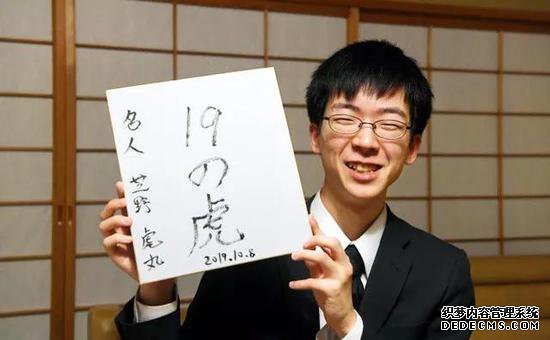 19の虎
2019.10.8
名人 芝野 虎丸
织梦内容管理系统
DEDECMS.COM